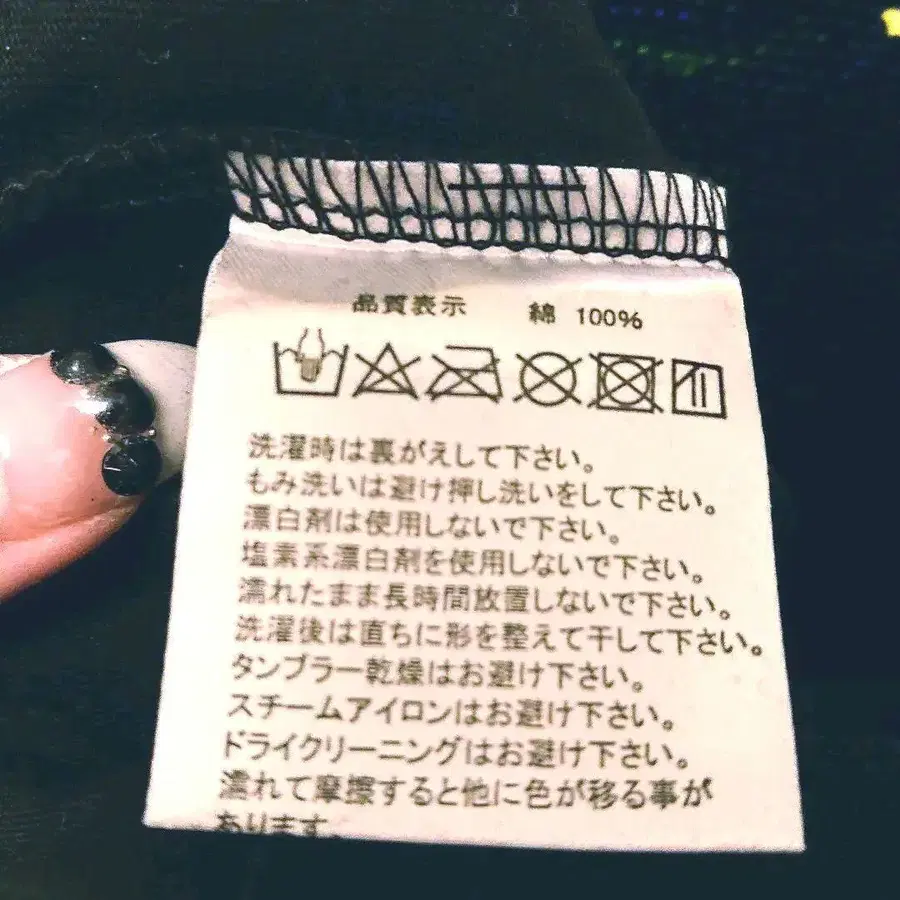 品質表示 綿 100%
洗濯時は裏がえして下さい。
もみ洗いは避け押し洗いをして下さい。
漂白剤は使用しないで下さい。
塩素系漂白剤を使用しないで下さい。
濡れたまま長時間放置しないで下さい。
洗濯後は直ちに形を整えて干して下さい。
タンブラー乾燥はお避け下さい。
スチームアイロンはお避け下さい。
ドライクリーニングはお避け下さい。
濡れて摩擦すると他に色が移る事が
あります。